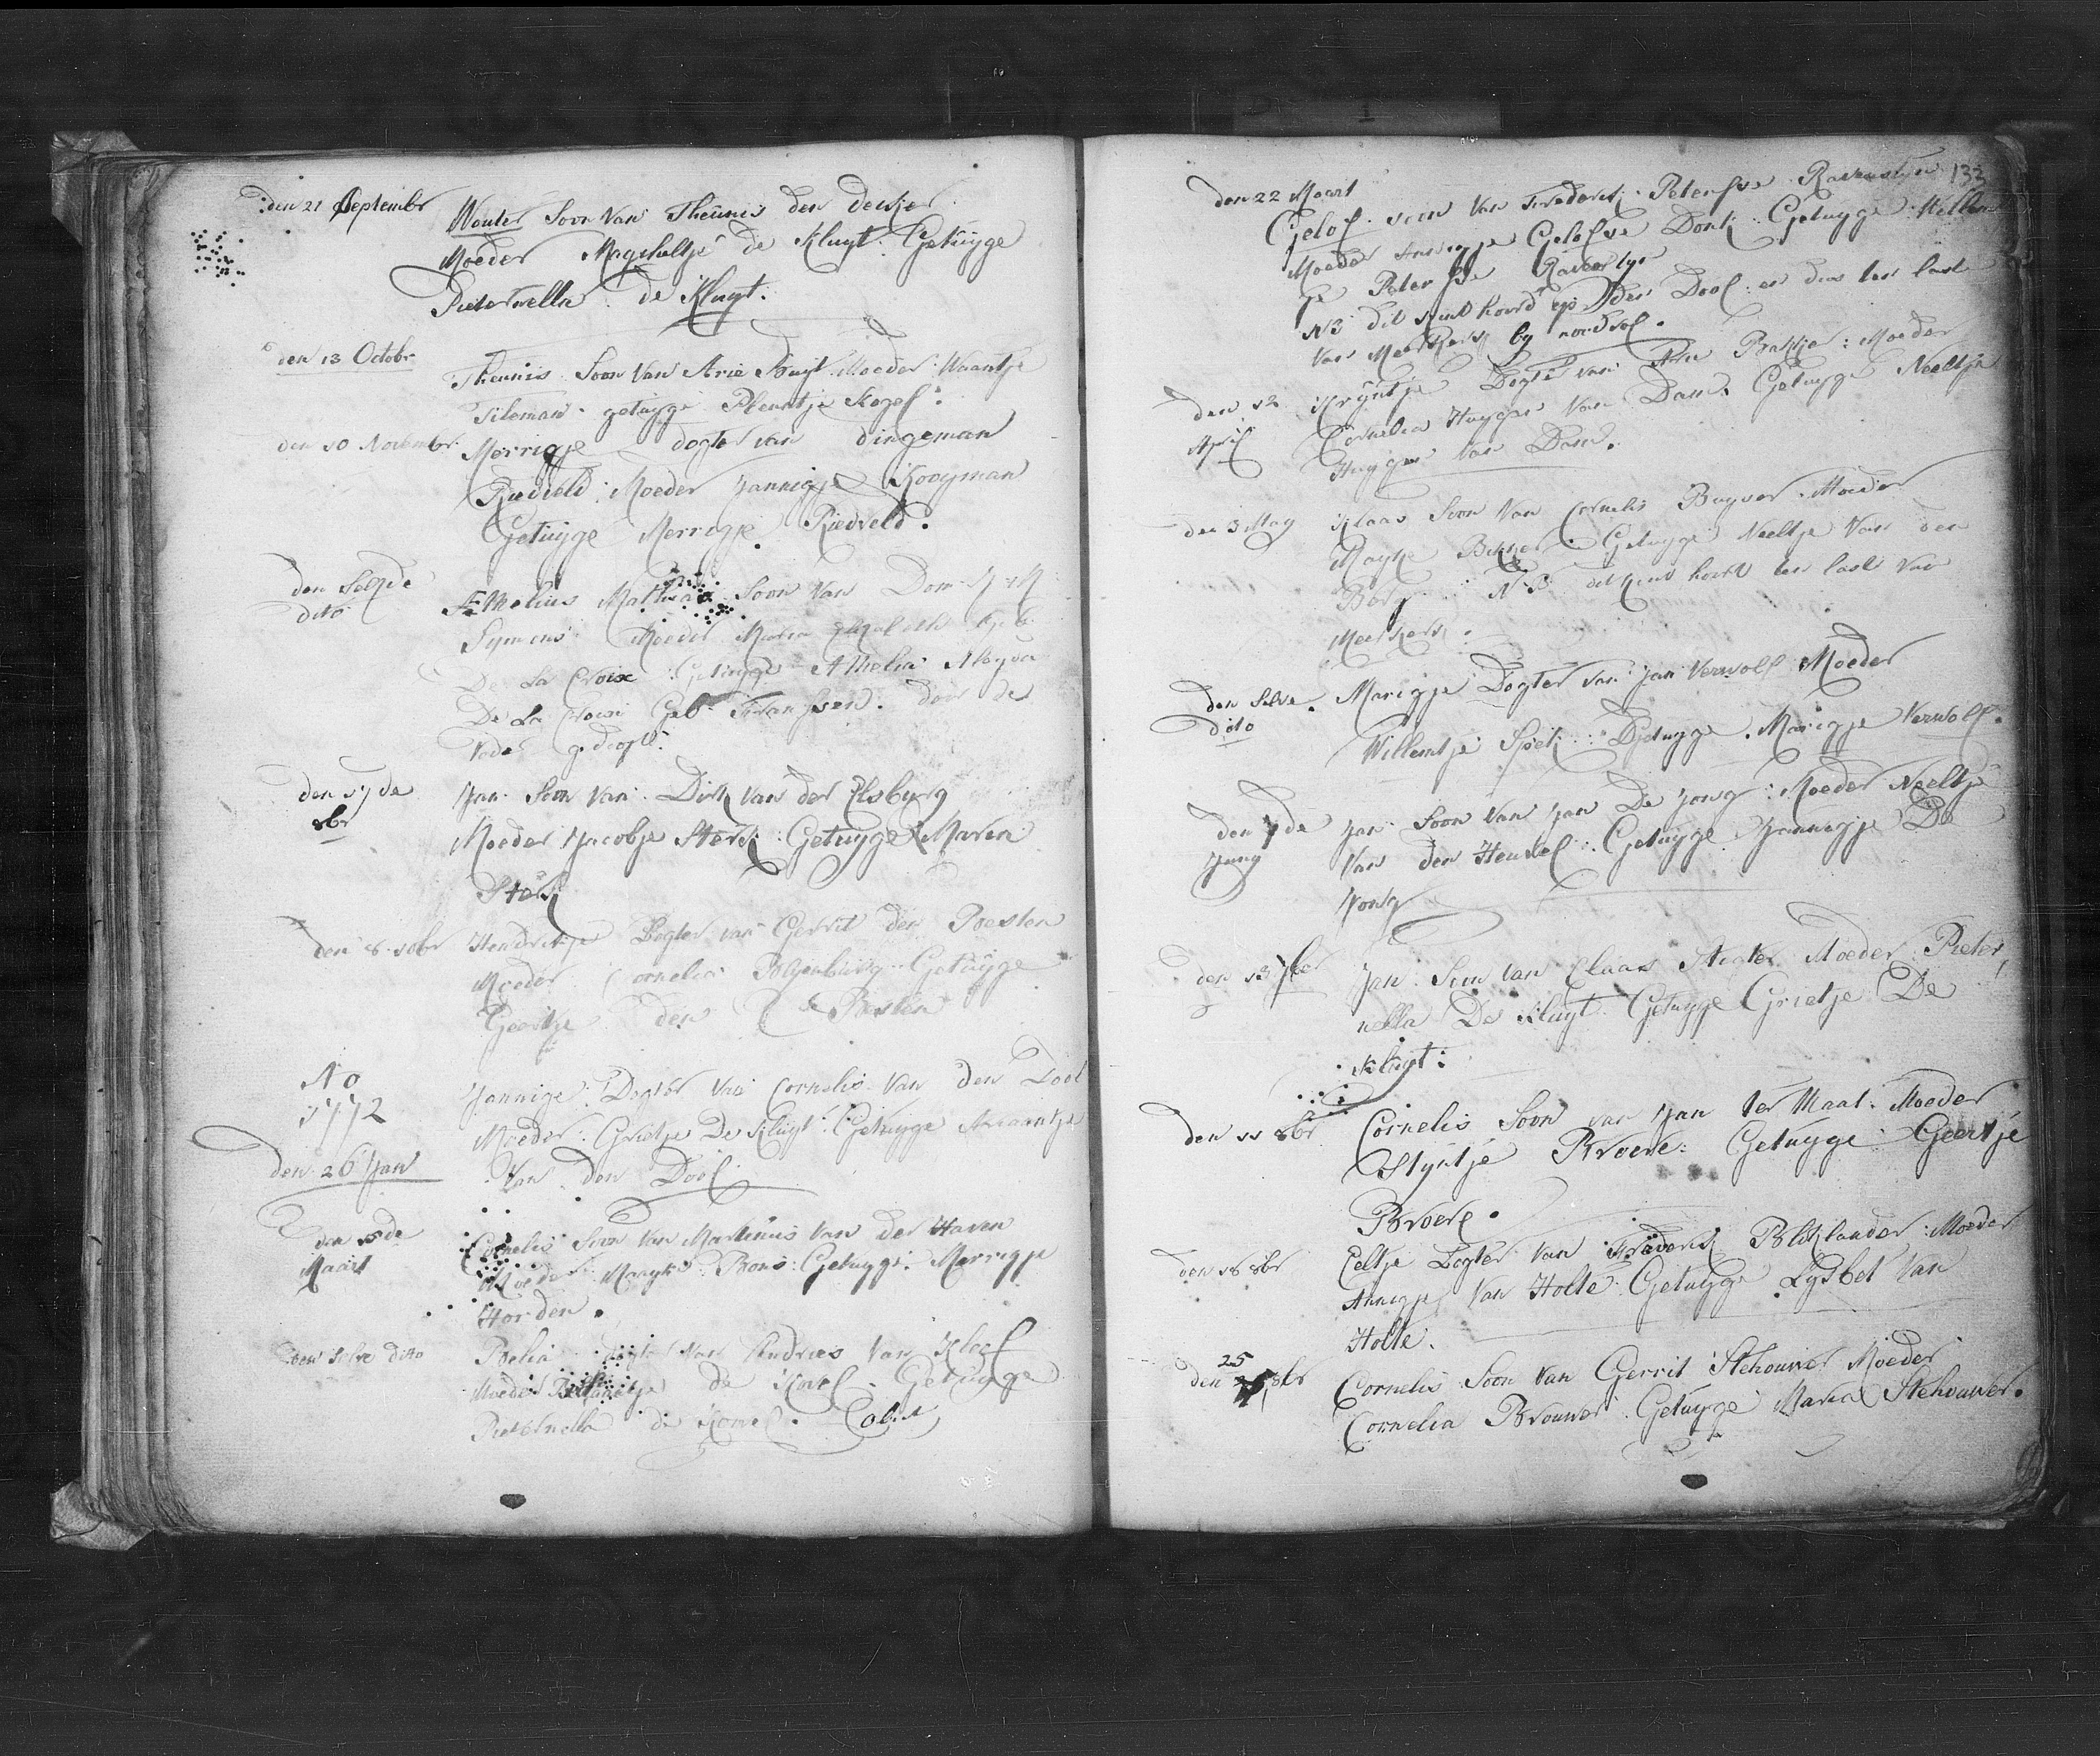 den 21 Septembr
Wouter Soon Van Theunis den dekker
Moeder Magcheltje de Kluyt: Getuyge
Pieternella de Kluyt:
den 13 Octobr
Theunis Soon Van Arie Buyt Moeder Waantje
Tileman getuyge Pleuntje Kogel:
den 10 Novembr
Merrigje dogter van dingeman
Riedveld: Moeder Jannigje Kooyman
Getuyge Merrigje Riedveld.
den Selfde
dito
Mathias Soon Van Dom
Symons Moeder Maria Elizabeth Geb
De La Croix Getuyge Athelia Aleyda
De La Croix Geb Franssen: door de
Vader
den 17 de
8br
Jan Soon Van Dirk Van der Elsburg
Moeder Jacobje Sterk: Getuyge Maria
Sterk
den 8 10br
Hendrikje Dogter van Gerrit den Besten
Moeder Cornelia Getuyge
Geertje den Besten
Ao
1772
den 26 Jan
Jannige: Dogter Van Cornelis Van den Dool
Moeder: Grietje De Kluyt: Getuyge Ariaantje
Van den Dool
den 15 de
Maart
Cornelis Soon Van Martinus Van der Haven
Moeder Maayke Bons: Getuyge: Merrigje
Horden.
den Selve dito
Belia dogter Van Andries Van Kloef
Moeder de Kovel. Getuyge
Pieternella de Kovel.
133
den 22 Maart
Gelof soon Van Frederik Peterse Ravensteyn
Moeder Annigje Gelofse Donk: Getuyge Willem
je Peterse
NB dit kint hoord op den Dool: en dus ten last
Van Meerkerk by noodsol.
den 12
April
Kryntje Dogter van Bakker: Moeder
Cornelia Huygen Van Dam. Getuyge Neeltje
Huygen Van Dam.
den 3 May
Klaas Soon Van Cornelis Buyser. Moeder
Mayke Bikker: Getuyge Neeltje Van den
Berg: NB: dit kint hoort ten laste Van
Meerkerk.
den Selve
dito
Marigje Dogter van Jan Verwolf Moeder
Willemtje Spek: Getuyge. Marigje Verwolf.
den 7 de
Juny
Jan Soon Van Jan De Jong: Moeder Neeltje
Van den Heuvel: Getuyge Jannigje De
Jong
den 13 7ber
Jan Soon van Claas Stigter Moeder: Pieter
nella De Kluyt. Getuyge Grietje De
Kluyt:
den 11 8br
Cornelis Soon van Jan ter Maat: Moeder
Styntje Broere: Getuyge Geertje
Broere.
den 18 8br
Eeltje Dogter Van Frederik Bliklander: Moeder
Annigje Van Holte: Getuyge Lysbet Van
Holte:
den 25 8br
Cornelis Soon Van Gerrit Stehouwer Moeder
Cornelia Brouwer. Getuyge Maria Stehouwer.